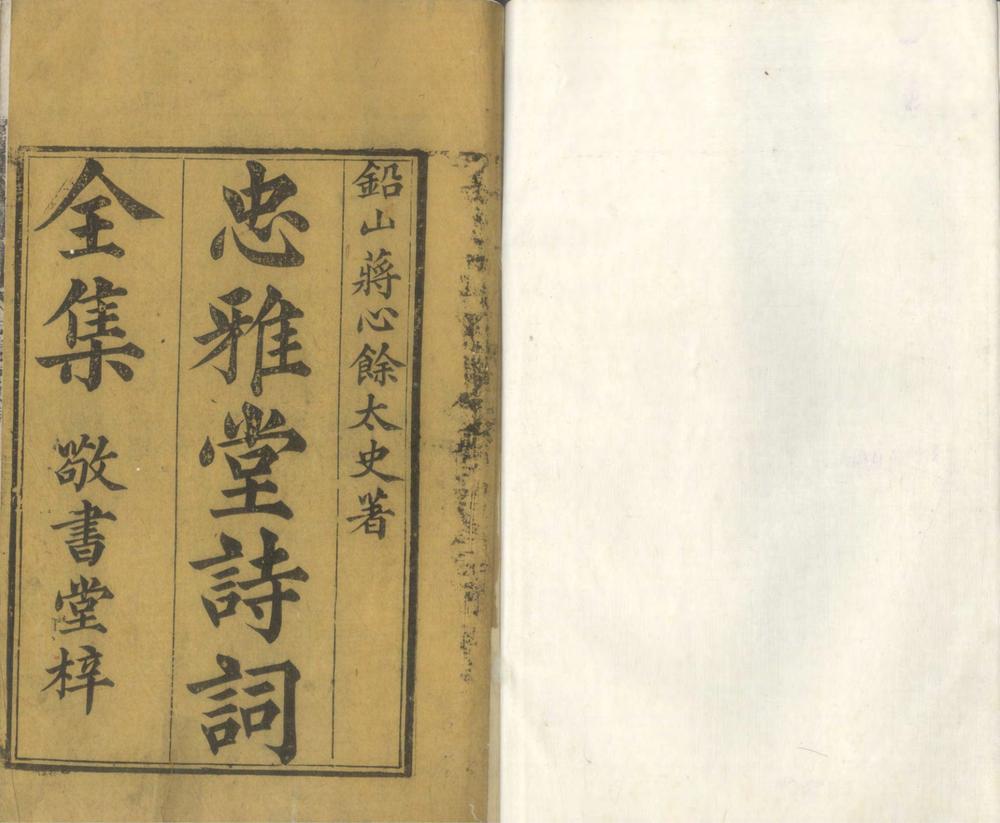 鉛山蔣心餘太史著
忠雅堂詩詞
全集
敬書堂梓